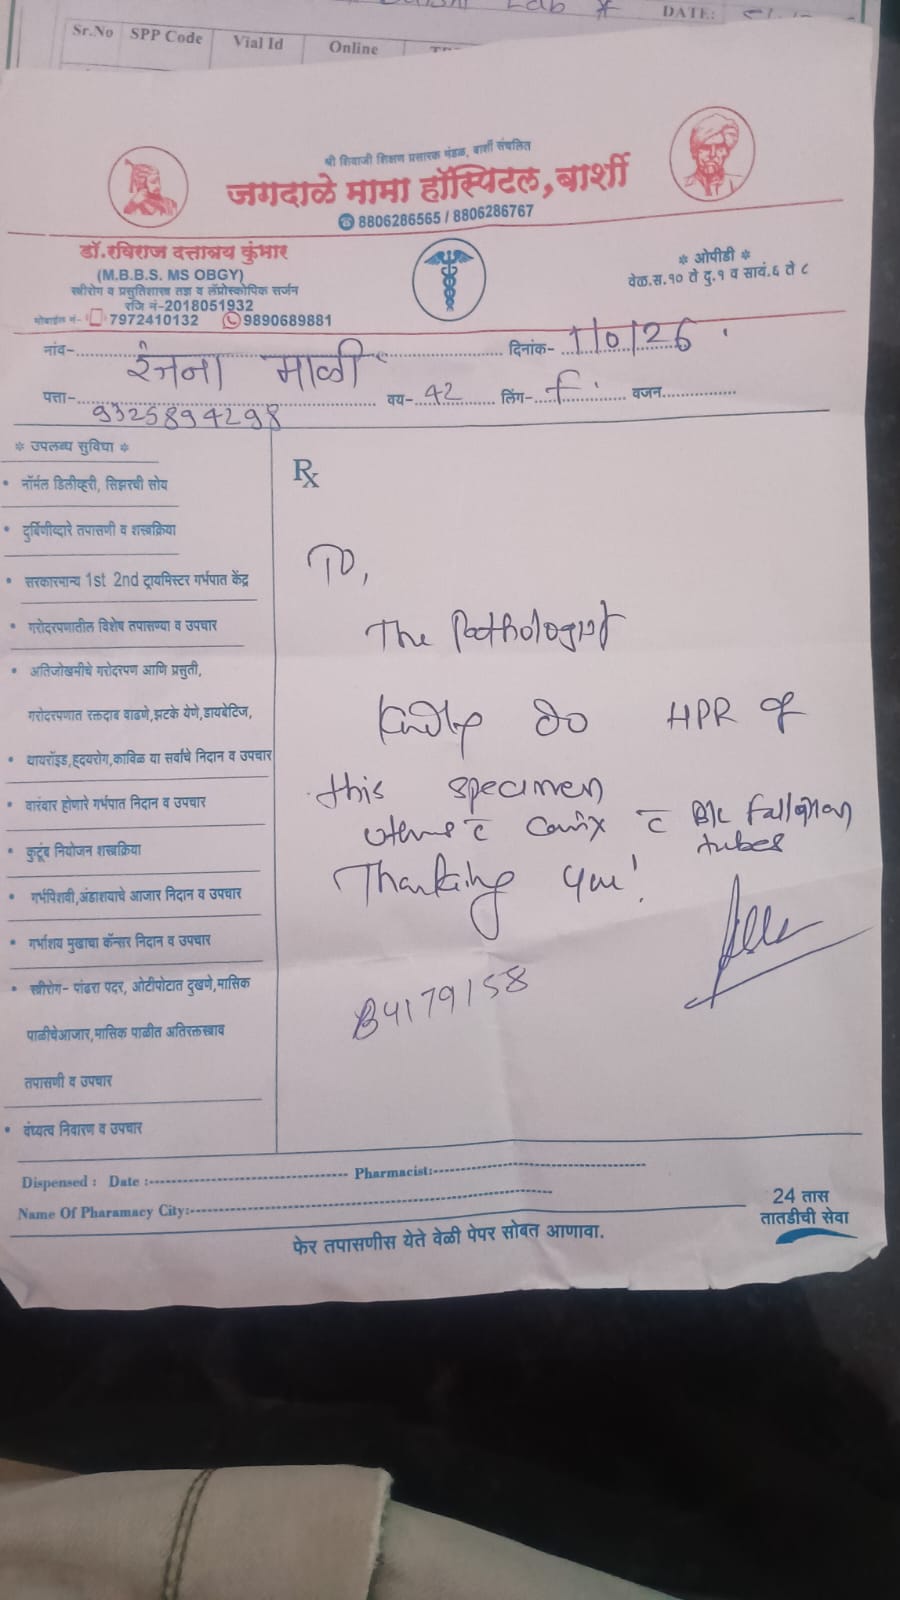 Lab *
DATE:
Sr.No SPP Code Vial Id Online
श्री शिवाजी शिक्षण प्रसारक मंडळ, बार्शी संचलित
जगदाळे मामा हॉस्पिटल, बार्शी
8806286565 / 8806286767
डॉ. रविराज दत्तात्रय कुंभार
(M.B.B.S. MS OBGY)
स्त्रीरोग व प्रसुतिशास्त्र तज्ञ व लॅप्रोस्कोपिक सर्जन
रजि नं-2018051932
मोबाईल नं- 7972410132 9890689881
* ओपीडी *
वेळ.स.१० ते दु.१ व सायं.६ ते ८
नांव- रंजना माळी दिनांक- 1/0/26
पत्ता- 9325894298 वय- 42 लिंग- F. वजन
* उपलब्ध सुविधा *
• नॉर्मल डिलीव्हरी, सिझरची सोय
• दुर्बिणीव्दारे तपासणी व शस्त्रक्रिया
• सरकारमान्य 1st 2nd ट्रायमिस्टर गर्भपात केंद्र
• गरोदरपणातील विशेष तपासण्या व उपचार
• अतिजोखमीचे गरोदरपण आणि प्रसुती,
गरोदरपणात रक्तदाब वाढणे,झटके येणे,डायबेटिज,
• थायरॉइड,हृदयरोग,काविळ या सर्वांचे निदान व उपचार
• वारंवार होणारे गर्भपात निदान व उपचार
• कुटूंब नियोजन शस्त्रक्रिया
• गर्भपिशवी,अंडाशयाचे आजार निदान व उपचार
• गर्भाशय मुखाचा कॅन्सर निदान व उपचार
• स्त्रीरोग- पांढरा पदर, ओटीपोटात दुखणे,मासिक
पाळीचेआजार,मासिक पाळीत अतिरक्तस्त्राव
तपासणी व उपचार
• वंध्यत्व निवारण व उपचार
Rx
TO,
The Pathologist
Kindly do HPR of
this specimen
uterus c̄ cervix c̄ B/L fallopian
tubes
Thanking you!
B4179158
Dispensed : Date : Pharmacist:
Name Of Pharamacy City:
24 तास
तातडीची सेवा
फेर तपासणीस येते वेळी पेपर सोबत आणावा.